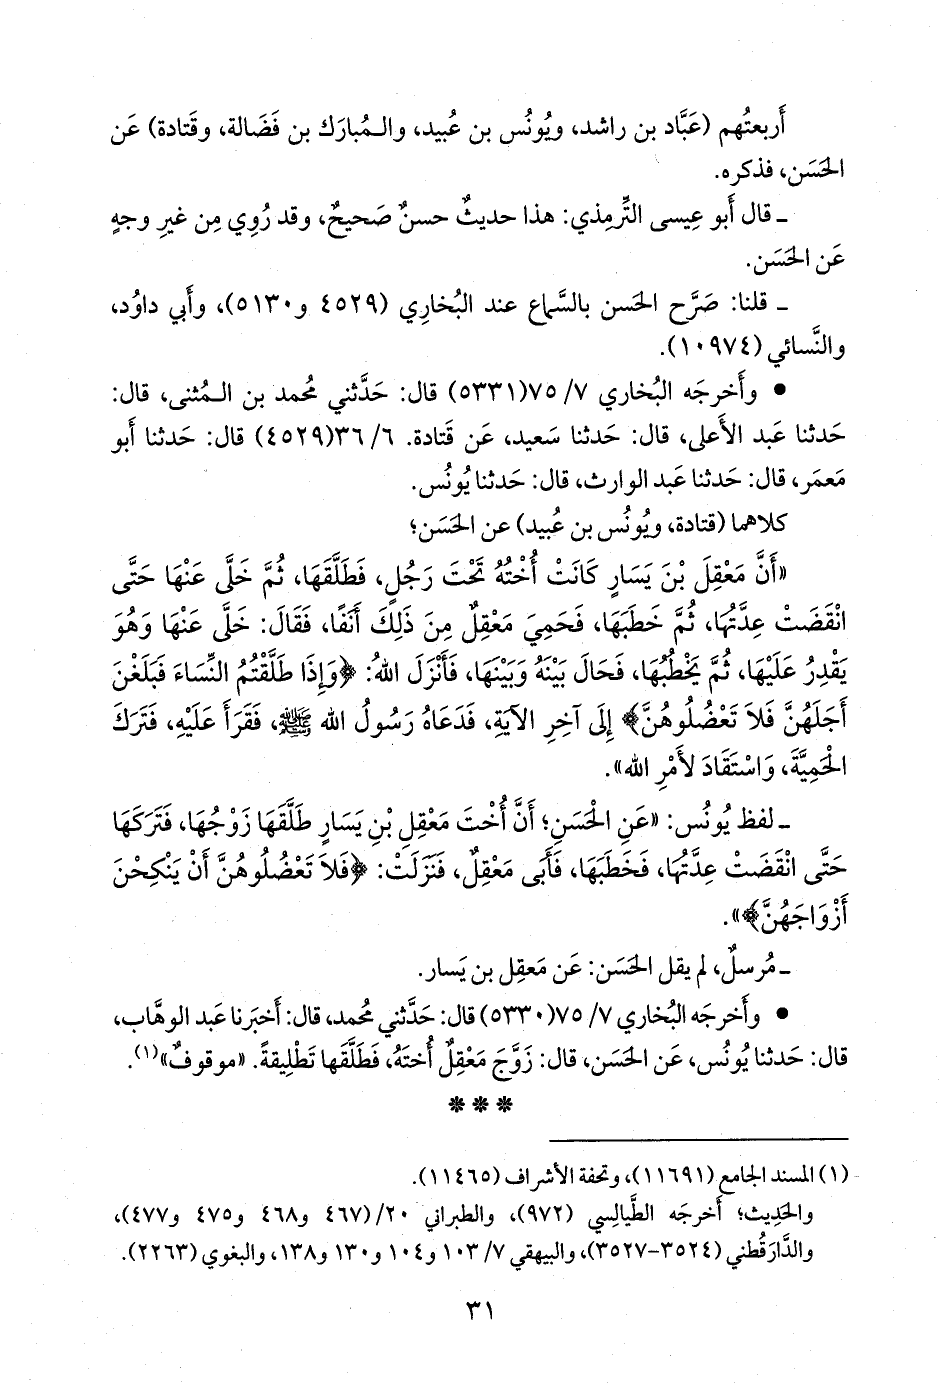 أَربعتُهم (عَبَّاد بن راشد، ويُونُس بن عُبيد، والـمُبارَك بن فَضَالة، وقَتادة) عَن
الحَسَن، فذكره.
ـ قال أَبو عِيسى التِّرمِذي: هذا حديثٌ حسنٌ صَحيحٌ، وقد رُوِي مِن غيرِ وجهٍ
عَن الحَسَن.
ـ قلنا: صَرَّح الحَسن بالسَّماع عند البُخارِي (٤٥٢٩ و٥١٣٠)، وأَبي داوُد،
والنَّسائي (١٠٩٧٤).
• وأَخرجَه البُخاري ٧/ ٧٥(٥٣٣١) قال: حَدَّثني مُحمد بن الـمُثنى، قال:
حَدثنا عَبد الأَعلى، قال: حَدثنا سَعيد، عَن قَتادة. ٦/ ٣٦(٤٥٢٩) قال: حَدثنا أَبو
مَعمَر، قال: حَدثنا عَبد الوارث، قال: حَدثنا يُونُس.
كلاهما (قتادة، ويُونُس بن عُبيد) عن الحَسَن؛
«أَنَّ مَعْقِلَ بْنَ يَسَارٍ كَانَتْ أُخْتُهُ تَحْتَ رَجُلٍ، فَطَلَّقَهَا، ثُمَّ خَلَّى عَنْهَا حَتَّى
انْقَضَتْ عِدَّتُهَا، ثُمَّ خَطَبَهَا، فَحَمِيَ مَعْقِلٌ مِنَ ذَلِكَ أَنَفًا، فَقَالَ: خَلَّى عَنْهَا وَهُوَ
يَقْدِرُ عَلَيْهَا، ثُمَّ يَخْطُبُهَا، فَحَالَ بَيْنَهُ وَبَيْنَهَا، فَأَنْزَلَ اللهُ: ﴿وَإِذَا طَلَّقْتُمُ النِّسَاءَ فَبَلَغْنَ
أَجَلَهُنَّ فَلاَ تَعْضُلُوهُنَّ﴾ إِلَى آخِرِ الآيَةِ، فَدَعَاهُ رَسُولُ الله ﷺ، فَقَرَأَ عَلَيْهِ، فَتَرَكَ
الْحَمِيَّةَ، وَاسْتَقَادَ لأَمْرِ الله».
ـ لفظ يُونُس: «عَنِ الْحَسَنِ؛ أَنَّ أُخْتَ مَعْقِلِ بْنِ يَسَارٍ طَلَّقَهَا زَوْجُهَا، فَتَرَكَهَا
حَتَّى انْقَضَتْ عِدَّتُهَا، فَخَطَبَهَا، فَأَبَى مَعْقِلٌ، فَنَزَلَتْ: ﴿فَلاَ تَعْضُلُوهُنَّ أَنْ يَنْكِحْنَ
أَزْوَاجَهُنَّ﴾».
ـ مُرسلٌ، لم يقل الحَسَن: عَن مَعقِل بن يَسار.
• وأَخرجَه البُخاري ٧/ ٧٥(٥٣٣٠) قال: حَدَّثني مُحمد، قال: أَخبَرنا عَبد الوهَّاب،
قال: حَدثنا يُونُس، عَن الحَسَن، قال: زَوَّجَ مَعْقِلٌ أُختَهُ، فَطَلَّقَها تَطْلِيقةً. «موقوفٌ»(١).
***
(١) المسند الجامع (١١٦٩١)، وتحفة الأشراف (١١٤٦٥).
والحَدِيث؛ أَخرجَه الطَّيالِسي (٩٧٢)، والطبراني ٢٠/ (٤٦٧ و٤٦٨ و٤٧٥ و٤٧٧)،
والدَّارَقُطني (٣٥٢٤-٣٥٢٧)، والبيهقي ٧/ ١٠٣ و١٠٤ و١٣٠ و١٣٨، والبغوي (٢٢٦٣).
٣١